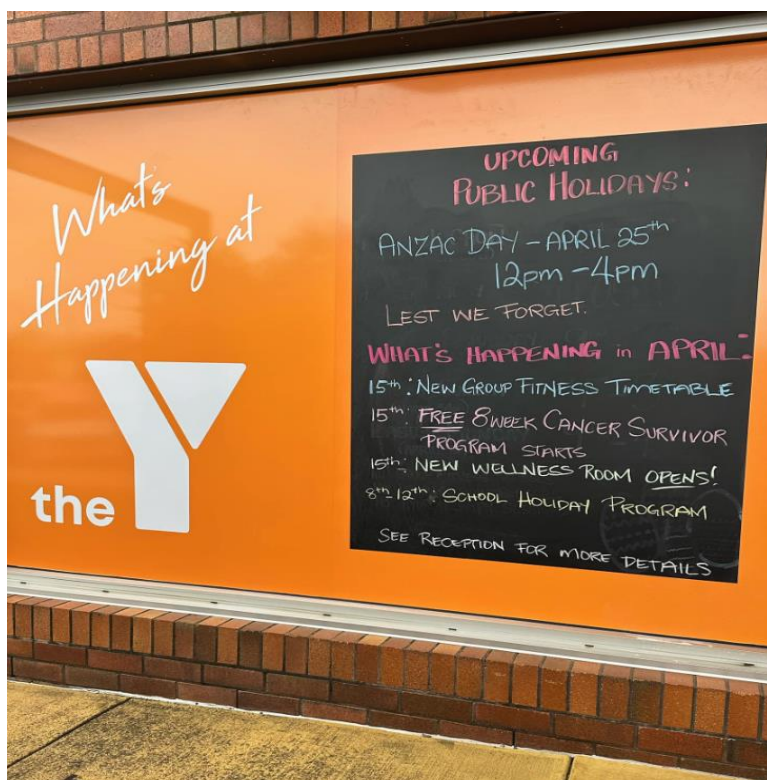 What's
Happening at
the Y
UPCOMING
PUBLIC HOLIDAYS:
ANZAC DAY - APRIL 25th
12pm - 4pm
LEST WE FORGET.
WHAT'S HAPPENING in APRIL:
15th: NEW GROUP FITNESS TIMETABLE
15th: FREE 8 WEEK CANCER SURVIVOR
PROGRAM STARTS
15th: NEW WELLNESS ROOM OPENS!
8th 12th: SCHOOL HOLIDAY PROGRAM
SEE RECEPTION FOR MORE DETAILS